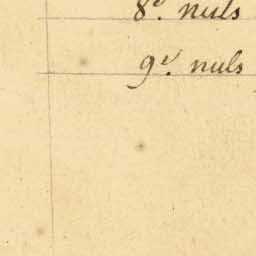 8e. nuls
9e. nuls